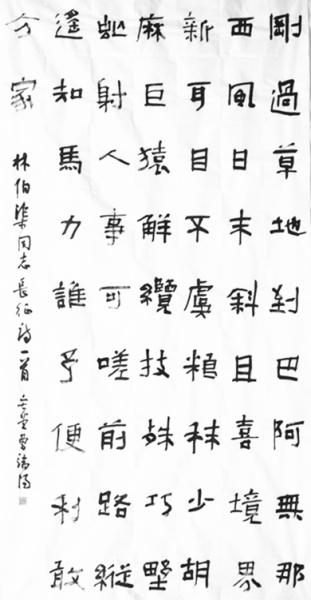 剛過草地到巴阿無那
西風日未斜且喜境界
新耳目不虞粮秣少胡
麻巨猿解纜技殊巧野
虵射人事可嗟前路縱
遥知馬力誰予便利敢
分家
林伯渠同志長征詩一首